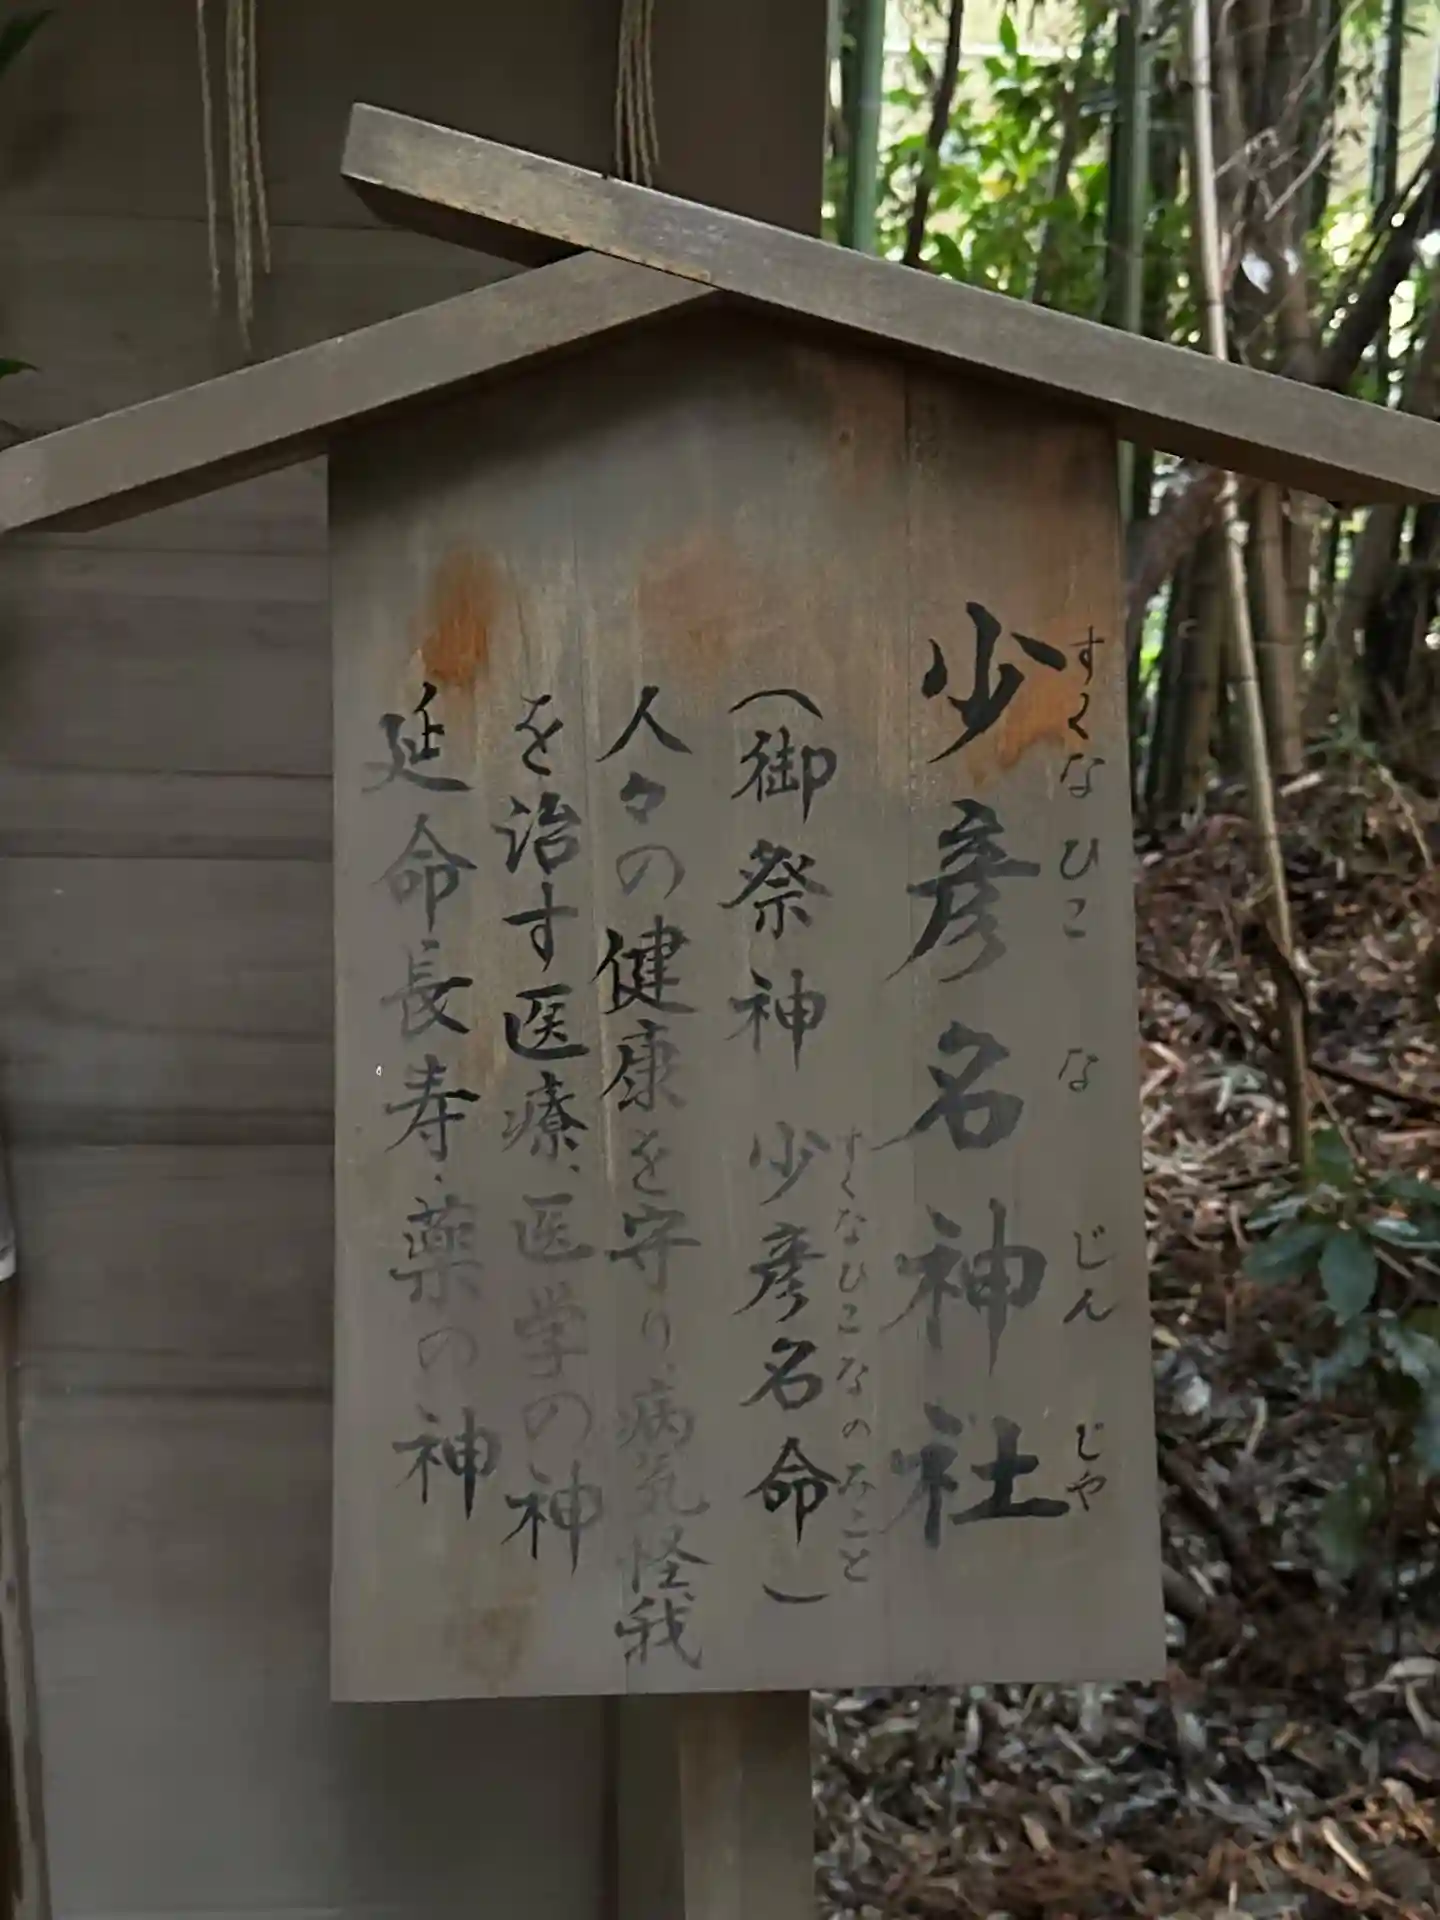 少彦名神社
すくなひこなじんじや
（御祭神　少彦名命）
すくなひこなのみこと
人々の健康を守り、病気怪我
を治す医療、医学の神
延命長寿・薬の神